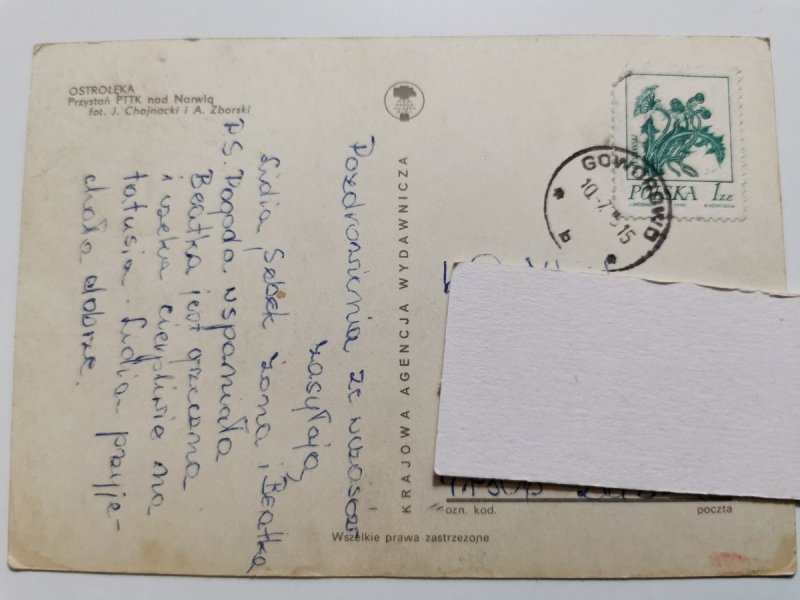 OSTROŁĘKA
Przystań PTTK nad Narwią
fot. J. Chojnacki i A. Zborski
Pozdrowienia ze wczasów
zasyłają
Lidia, Sebek żona i Beatka
P.S. Pogoda wspaniała
Beatka jest grzeczna
i czeka cierpliwie na
tatusia. Lidia przyje-
chała dobrze.
KRAJOWA AGENCJA WYDAWNICZA
POLSKA 1 ZŁ
GOWOROWO
b
ozn. kod. poczta
Wszelkie prawa zastrzeżone